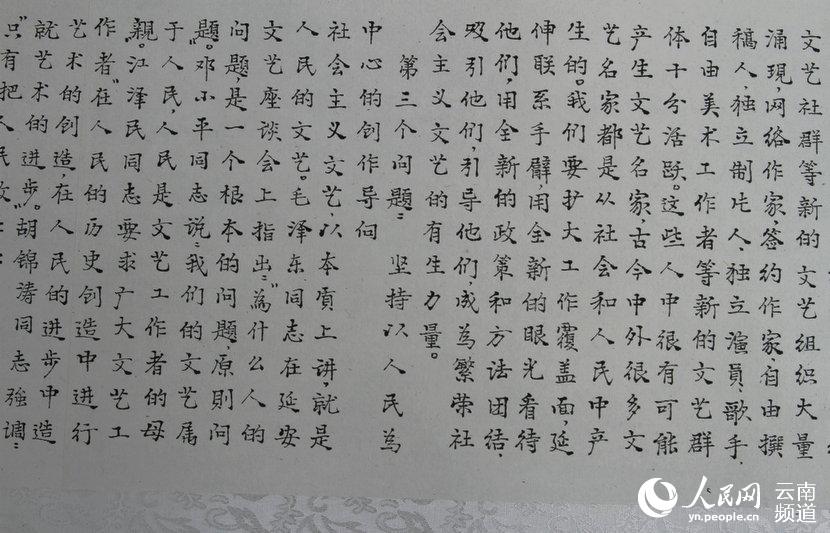 文艺社群等新的文艺组织大量
涌现,网络作家,签约作家,自由撰
稿人,独立制片人,独立演员,歌手,
自由美术工作者等新的文艺群
体十分活跃。这些人中很有可能
产生文艺名家,古今中外很多文
艺名家都是从社会和人民中产
生的。我们要扩大工作覆盖面,延
伸联系手臂,用全新的眼光看待
他们,用全新的政策和方法团结,
吸引他们,引导他们,成為繁荣社
会主义文艺的有生力量。
第三个问题:坚持以人民為
中心的创作导向
社会主义文艺,以本质上讲,就是
人民的文艺。毛泽东同志在延安
文艺座谈会上指出:"為什么人的
问题,是一个根本的问题,原則问
题。"邓小平同志说:"我们的文艺属
于人民,人民是文艺工作者的母
親。"江泽民同志要求广大文艺工
作者"在人民的历史创造中进行
艺术的创造,在人民的进步中造
就艺术的进步。"胡锦涛同志强调:
"只有把人民
人民网 云南频道
yn.people.cn